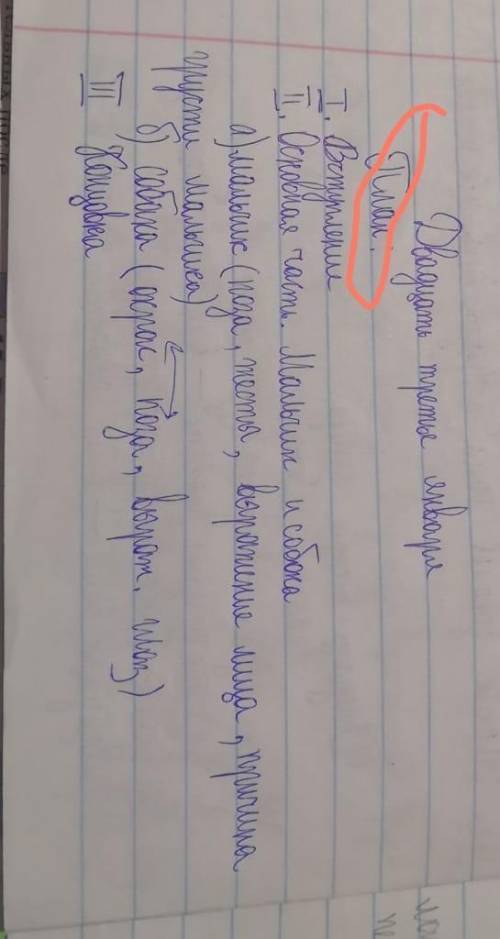 Двадцать третье января
План.
I. Вступление
II. Основная часть. Мальчик и собака
а) мальчик (поза, жесты, выражение лица, причина
грусти мальчика)
б) собака (окрас, поза, выраж. глаз)
III Концовка